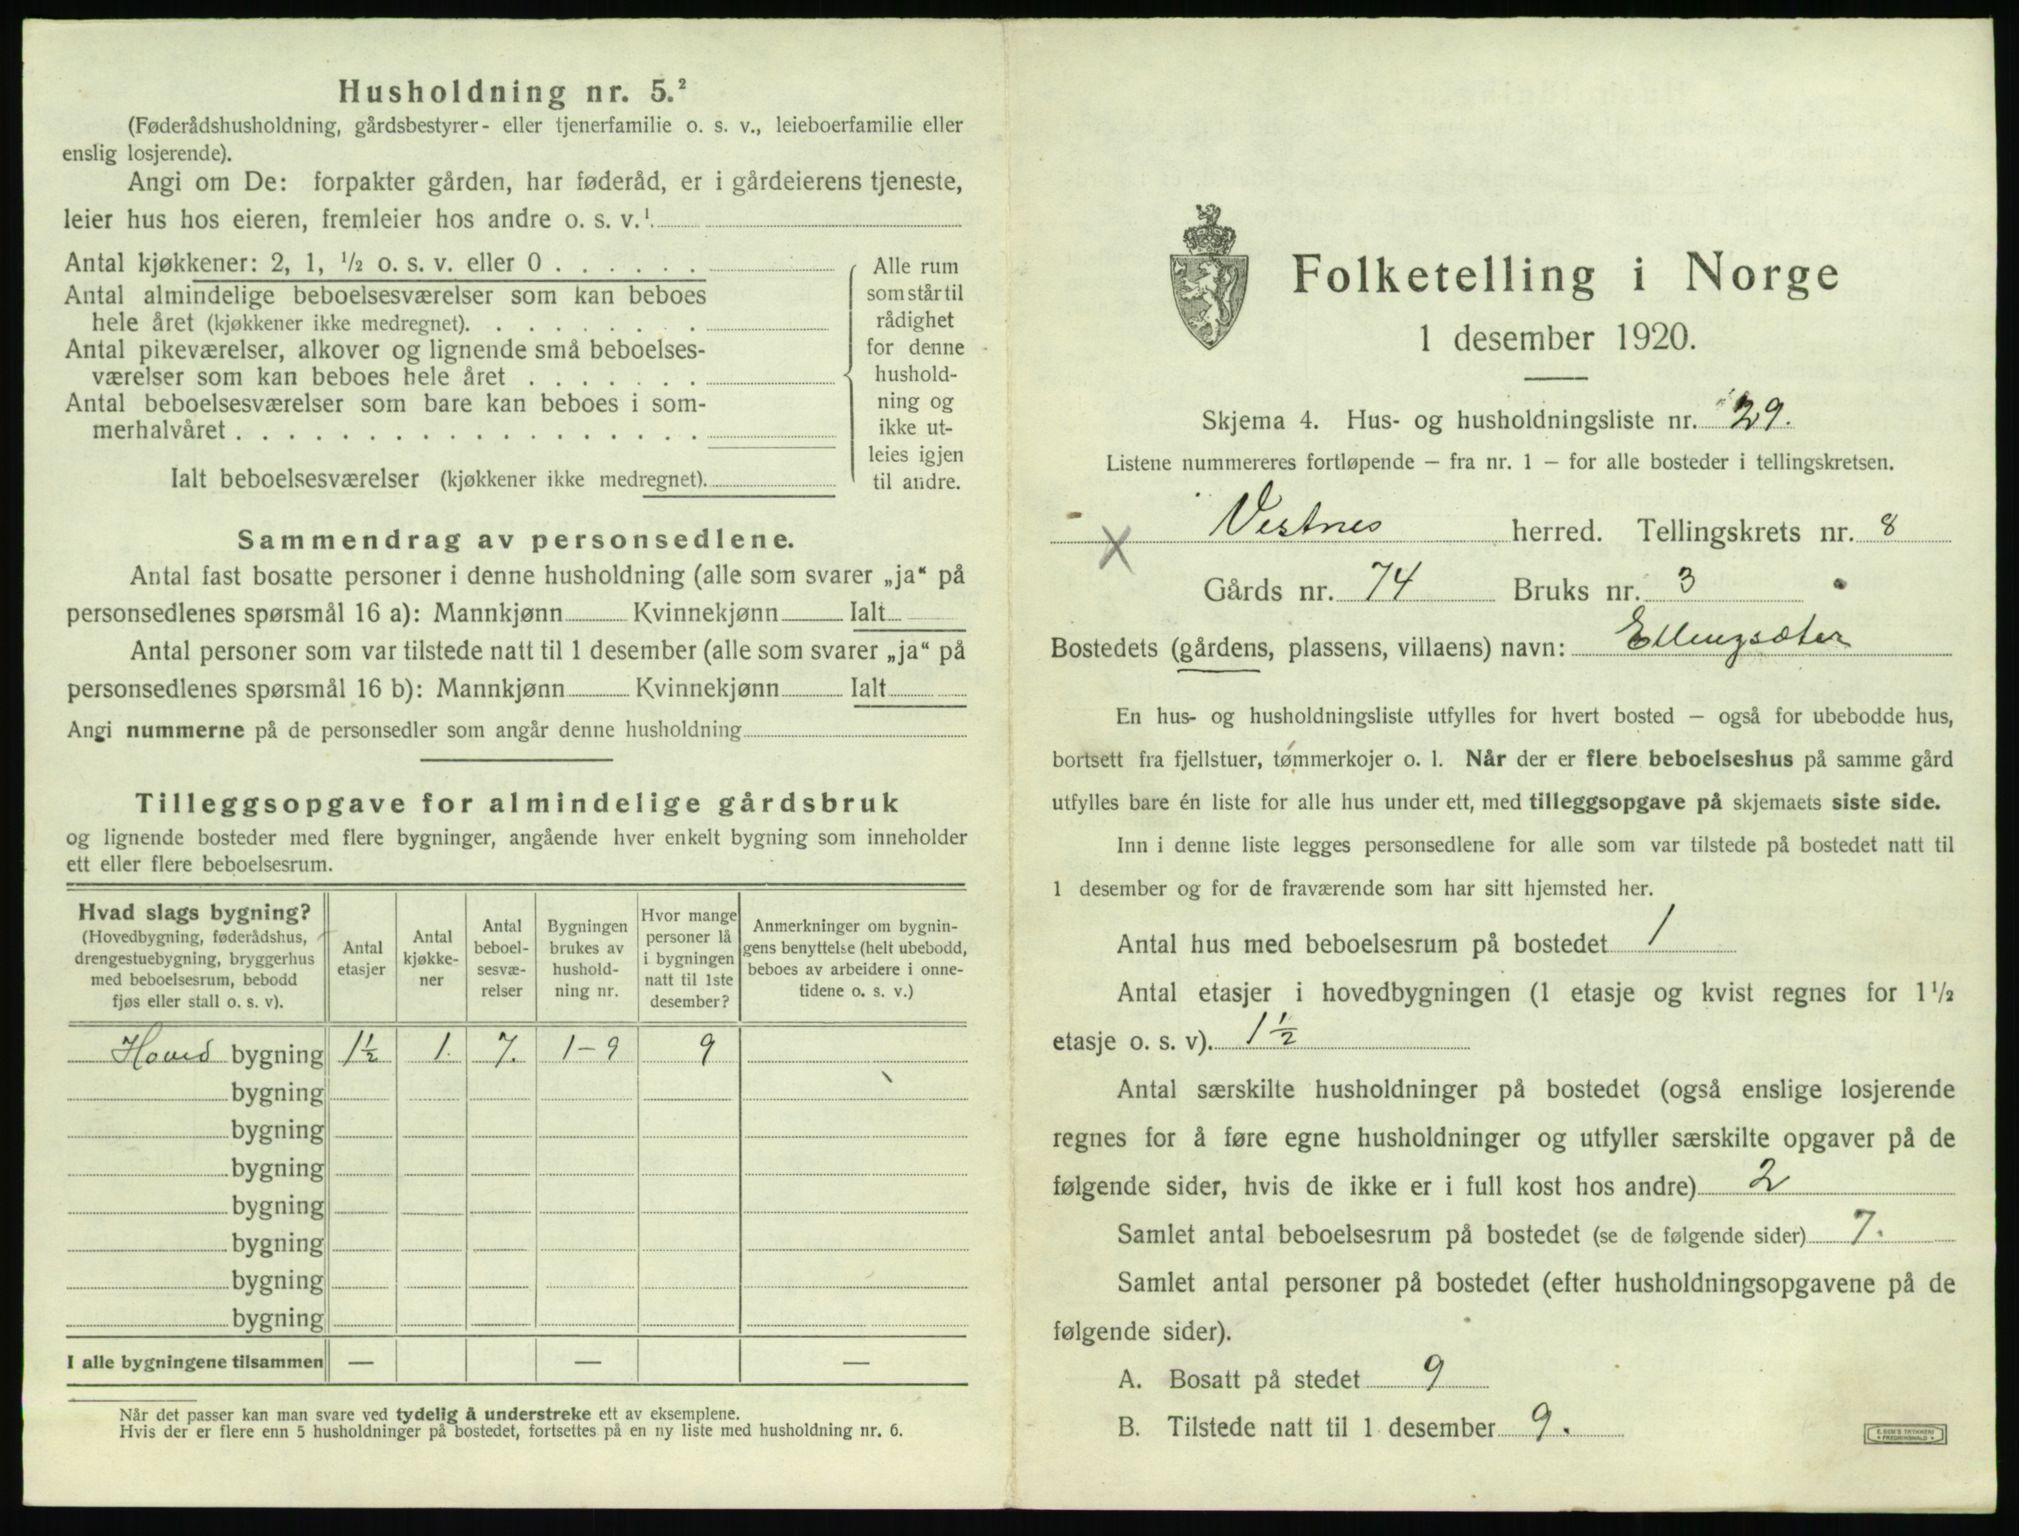 Husholdning nr. 5.²
(Føderådshusholdning, gårdsbestyrer- eller tjenerfamilie o. s. v., leieboerfamilie eller
enslig losjerende).
Angi om De: forpakter gården, har føderåd, er i gårdeierens tjeneste,
leier hus hos eieren, fremleier hos andre o. s. v.¹
Antal kjøkkener: 2, 1, ½ o. s. v. eller 0 . . . . . .
Antal almindelige beboelsesværelser som kan beboes
hele året (kjøkkener ikke medregnet). . . . . . . . .
Antal pikeværelser, alkover og lignende små beboelses-
værelser som kan beboes hele året . . . . . . .
Antal beboelsesværelser som bare kan beboes i som-
merhalvåret . . . . . . . . . . . . . . . . . .
Ialt beboelsesværelser (kjøkkener ikke medregnet).
Alle rum
som står til
rådighet
for denne
hushold-
ning og
ikke ut-
leies igjen
til andre.
Sammendrag av personsedlene.
Antal fast bosatte personer i denne husholdning (alle som svarer „ja“ på
personsedlenes spørsmål 16 a): Mannkjønn Kvinnekjønn Ialt
Antal personer som var tilstede natt til 1 desember (alle som svarer „ja“ på
personsedlenes spørsmål 16 b): Mannkjønn Kvinnekjønn Ialt
Angi nummerne på de personsedler som angår denne husholdning
Tilleggsopgave for almindelige gårdsbruk
og lignende bosteder med flere bygninger, angående hver enkelt bygning som inneholder
ett eller flere beboelsesrum.
Hvad slags bygning?
(Hovedbygning, føderådshus,
drengestuebygning, bryggerhus
med beboelsesrum, bebodd
fjøs eller stall o. s. v).
Antal
etasjer
Antal
kjøkke-
ner
Antal
beboel-
sesvæ-
relser
Bygningen
brukes av
hushold-
ning nr.
Hvor mange
personer lå
i bygningen
natt til 1ste
desember?
Anmerkninger om bygnin-
gens benyttelse (helt ubebodd,
beboes av arbeidere i onne-
tidene o. s. v.)
Hoved bygning 1½ 1. 7. 1-9 9
bygning
bygning
bygning
bygning
bygning
bygning
bygning
I alle bygningene tilsammen — — —
Når det passer kan man svare ved tydelig å understreke ett av eksemplene.
Hvis der er flere enn 5 husholdninger på bostedet, fortsettes på en ny liste med husholdning nr. 6.
Folketelling i Norge
1 desember 1920.
Skjema 4. Hus- og husholdningsliste nr. 29.
Listene nummereres fortløpende – fra nr. 1 – for alle bosteder i tellingskretsen.
Vestnes herred. Tellingskrets nr. 8
X
Gårds nr. 74 Bruks nr. 3
Bostedets (gårdens, plassens, villaens) navn: Ellingsæter
En hus- og husholdningsliste utfylles for hvert bosted – også for ubebodde hus,
bortsett fra fjellstuer, tømmerkojer o. l. Når der er flere beboelseshus på samme gård
utfylles bare én liste for alle hus under ett, med tilleggsopgave på skjemaets siste side.
Inn i denne liste legges personsedlene for alle som var tilstede på bostedet natt til
1 desember og for de fraværende som har sitt hjemsted her.
Antal hus med beboelsesrum på bostedet 1
Antal etasjer i hovedbygningen (1 etasje og kvist regnes for 1½
etasje o. s. v). 1½
Antal særskilte husholdninger på bostedet (også enslige losjerende
regnes for å føre egne husholdninger og utfyller særskilte opgaver på de
følgende sider, hvis de ikke er i full kost hos andre) 2
Samlet antal beboelsesrum på bostedet (se de følgende sider) 7.
Samlet antal personer på bostedet (efter husholdningsopgavene på de
følgende sider).
A. Bosatt på stedet 9
B. Tilstede natt til 1 desember 9.
E. SEM'S TRYKKERI
FREDRIKSHALD